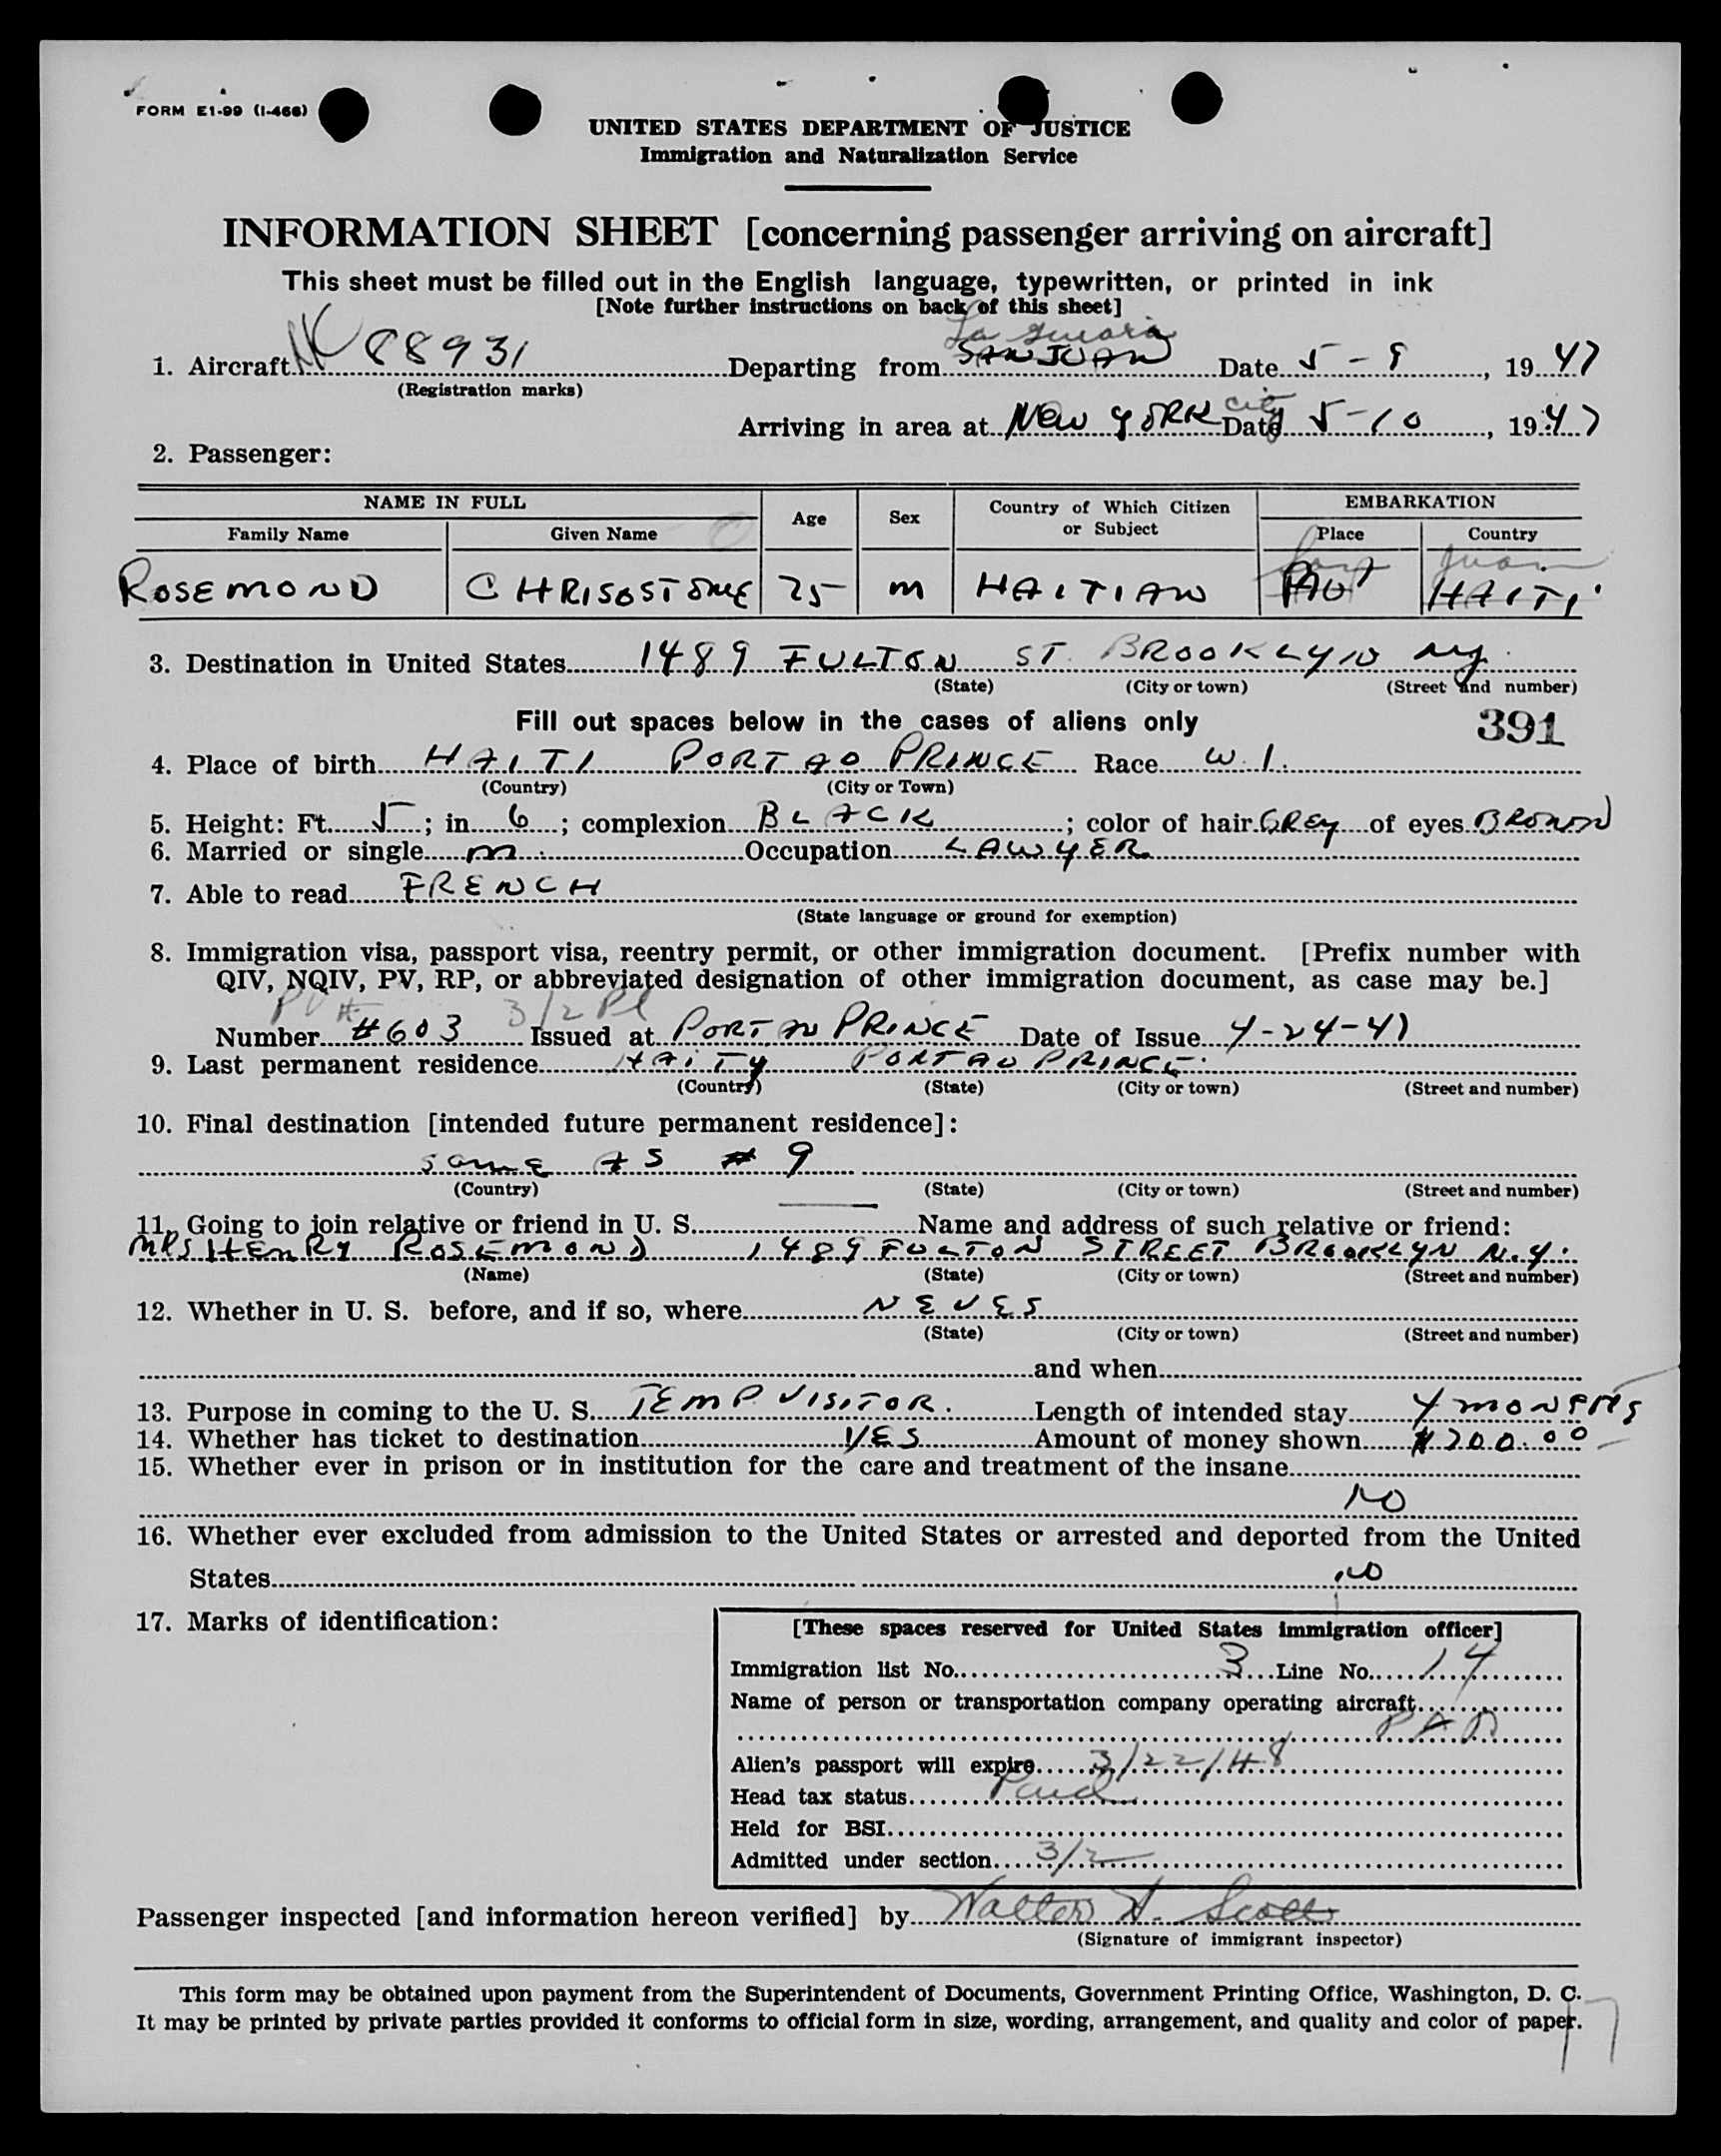 FORM E1-99 (I-466)
UNITED STATES DEPARTMENT OF JUSTICE
Immigration and Naturalization Service
INFORMATION SHEET [concerning passenger arriving on aircraft]
This sheet must be filled out in the English language, typewritten, or printed in ink
[Note further instructions on back of this sheet]
La Guaria
1. Aircraft NC 88931 Departing from SAN JUAN Date 5-9, 1947
(Registration marks)
Arriving in area at New YORK city Date 5-10, 1947
2. Passenger:
NAME IN FULL Age Sex Country of Which Citizen or Subject EMBARKATION
Family Name Given Name Place Country
San Juan
ROSEMOND CHRISOSTOME 75 M HAITIAN PAU HAITI
3. Destination in United States 1489 FULTON ST. BROOKLYN NY.
(State) (City or town) (Street and number)
Fill out spaces below in the cases of aliens only 391
4. Place of birth HAITI PORT AU PRINCE Race W.I.
(Country) (City or Town)
5. Height: Ft. 5; in. 6; complexion BLACK; color of hair GREY of eyes BROWN
6. Married or single M. Occupation LAWYER
7. Able to read FRENCH
(State language or ground for exemption)
8. Immigration visa, passport visa, reentry permit, or other immigration document. [Prefix number with
QIV, NQIV, PV, RP, or abbreviated designation of other immigration document, as case may be.]
PV # 3/2 Pl
Number #603 Issued at PORT AU PRINCE Date of Issue 4-24-47
9. Last permanent residence HAITY PORT AU PRINCE.
(Country) (State) (City or town) (Street and number)
10. Final destination [intended future permanent residence]:
same AS # 9
(Country) (State) (City or town) (Street and number)
11. Going to join relative or friend in U. S. Name and address of such relative or friend:
MRS HENRY ROSEMOND 1489 FULTON STREET BROOKLYN N.Y.
(Name) (State) (City or town) (Street and number)
12. Whether in U. S. before, and if so, where NEVES
(State) (City or town) (Street and number)
and when
13. Purpose in coming to the U. S. TEMP. VISITOR. Length of intended stay 4 MONTHS
14. Whether has ticket to destination YES Amount of money shown $200.00
15. Whether ever in prison or in institution for the care and treatment of the insane
NO
16. Whether ever excluded from admission to the United States or arrested and deported from the United
States NO
17. Marks of identification:
[These spaces reserved for United States immigration officer]
Immigration list No. 3 Line No. 14
Name of person or transportation company operating aircraft
PAA
Alien's passport will expire 3/22/48
Head tax status Paid
Held for BSI
Admitted under section 3/2
Passenger inspected [and information hereon verified] by Walter H. Scott
(Signature of immigrant inspector)
This form may be obtained upon payment from the Superintendent of Documents, Government Printing Office, Washington, D. C.
It may be printed by private parties provided it conforms to official form in size, wording, arrangement, and quality and color of paper.